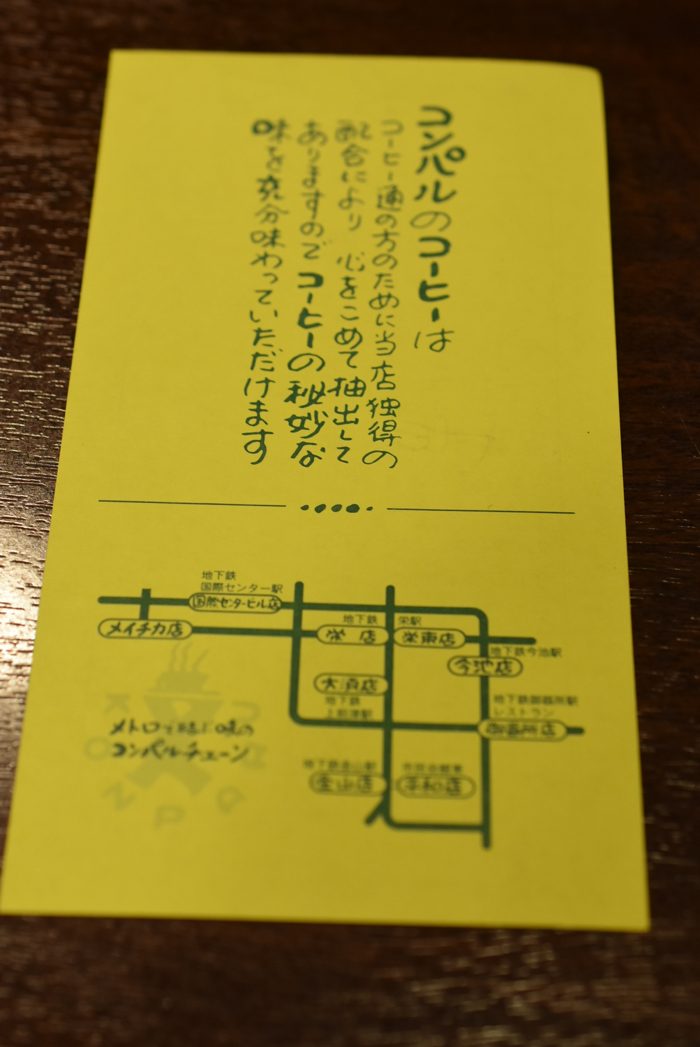 コンパルのコーヒーは
コーヒー通の方のために当店独得の
配合により 心をこめて抽出して
ありますので コーヒーの秘妙な
味を充分味わっていただけます
地下鉄
国際センター駅
国際センタービル店
メイチカ店
地下鉄
栄店
栄駅
栄東店
地下鉄今池駅
今池店
大須店
地下鉄
上前津駅
地下鉄御器所駅
レストラン
御器所店
メトロで結ぶ味の
コンパルチェーン
地下鉄金山駅
金山店
平和店